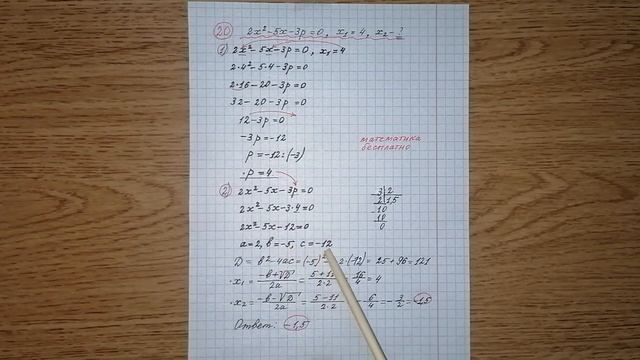 20 2x²-5x-3p=0, x₁=4, x₂-?
1) 2x²-5x-3p=0, x₁=4
2·4²-5·4-3p=0
2·16-20-3p=0
32-20-3p=0
12-3p=0
-3p=-12
p=-12:(-3)
p=4
математика
бесплатно
2) 2x²-5x-3p=0
2x²-5x-3·4=0
2x²-5x-12=0
a=2, b=-5, c=-12
3 2
2 1,5
10
10
0
D=b²-4ac=(-5)² 2·(-12)=25+96=121
x₁=(-b+√D)/2a=(5+1)/2·2 16/4=4
x₂=(-b-√D)/2a=(5-11)/2·2 -6/4=-3/2=-1,5
Ответ: -1,5